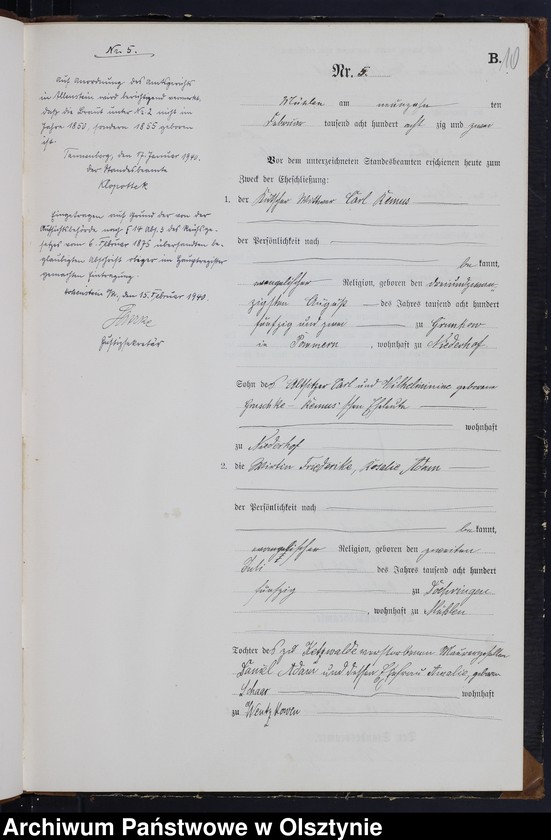 B.
10
Nr. 5.
Auf Anordnung des Amtsgerichts
in Allenstein wird berichtigend vermerkt,
daß die Braut unter No 2 nicht im
Jahre 1850, sondern 1855 geboren
ist.
Tannenberg, den 17. Januar 1940.
Der Standesbeamte
Klopottek
Eingetragen auf Grund der von der
Aufsichtsbehörde nach § 14 Abs. 3 des Reichsge-
setzes vom 6. Februar 1875 übersandten be-
glaubigten Abschrift obiger im Hauptregister
gemachten Eintragung.
Hohenstein, den 15. Februar 1940.
Justizsekretär
Nr. 5.
Mühlen am neunzehn ten
Februar tausend acht hundert acht zig und zwei
Vor dem unterzeichneten Standesbeamten erschienen heute zum
Zweck der Eheschließung:
1. der Wittwer Carl Remus
der Persönlichkeit nach
be kannt,
evangelischer Religion, geboren den dreiundzwan-
zigsten August des Jahres tausend acht hundert
fünfzig und zwei zu Grumkow
in Pommern, wohnhaft zu Niederhof
Sohn des Altsitzer Carl und Wilhelmine geborene
Remus'schen Eheleute
wohnhaft
zu Niederhof
2. die Wirtin Friederike, Rosalie, Adam
der Persönlichkeit nach
be kannt,
evangelischer Religion, geboren den zweiten
Juli des Jahres tausend acht hundert
fünfzig zu Döhringen
, wohnhaft zu Mühlen
Tochter des zu verstorbenen Maurergesellen
Daniel Adam und dessen Ehefrau Amalie, geborene
Schaer wohnhaft
zu
Archiwum Państwowe w Olsztynie